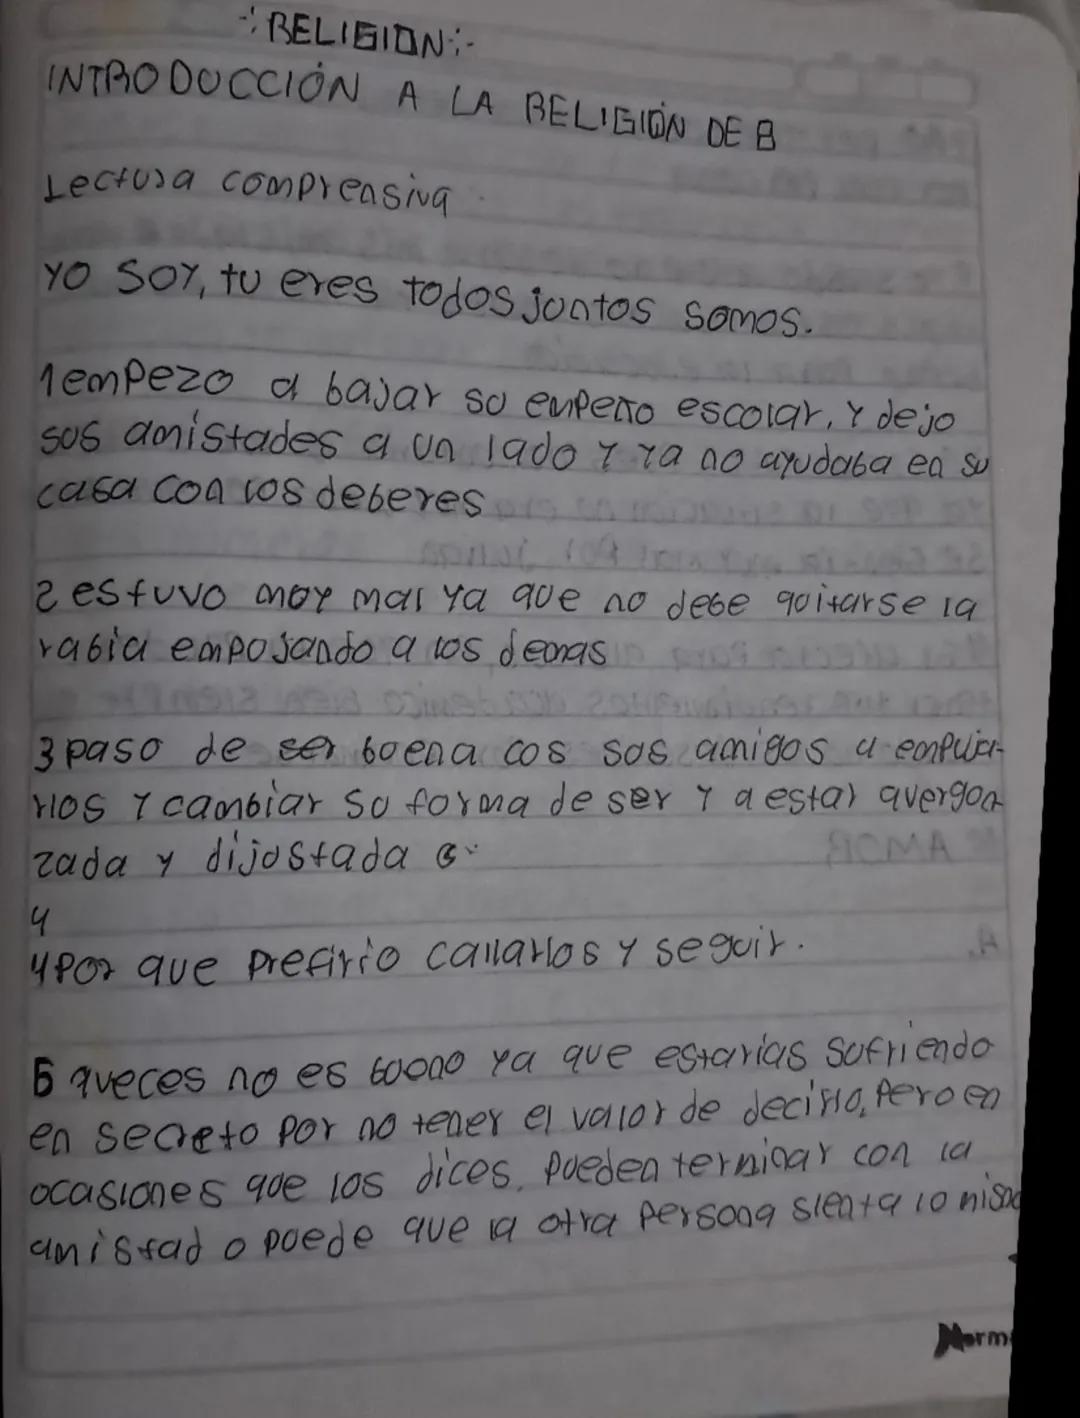 -:RELIGION:-
INTRODUCCIÓN A LA RELIGIÓN DE 8
Lectura comprensiva
YO SOY, tu eres todos juntos somos.
1 empezo a bajar su empeño escolar, y dejo
sus amistades a un lado y ya no ayudaba en su
casa con los deberes
2 estuvo muy mal ya que no debe quitarse la
rabia empujando a los demas
3 paso de ser buena cos sus amigos a empujar-
rlos y cambiar su forma de ser y a estar avergon
zada y dijustada
4
4 Por que prefirio callarlos y seguir.
5 aveces no es bueno ya que estarias sufriendo
en secreto por no tener el valor de decirlo, Pero en
ocasiones que los dices. pueden terminar con la
amistad o puede que la otra persona sienta lo mismo
Norm